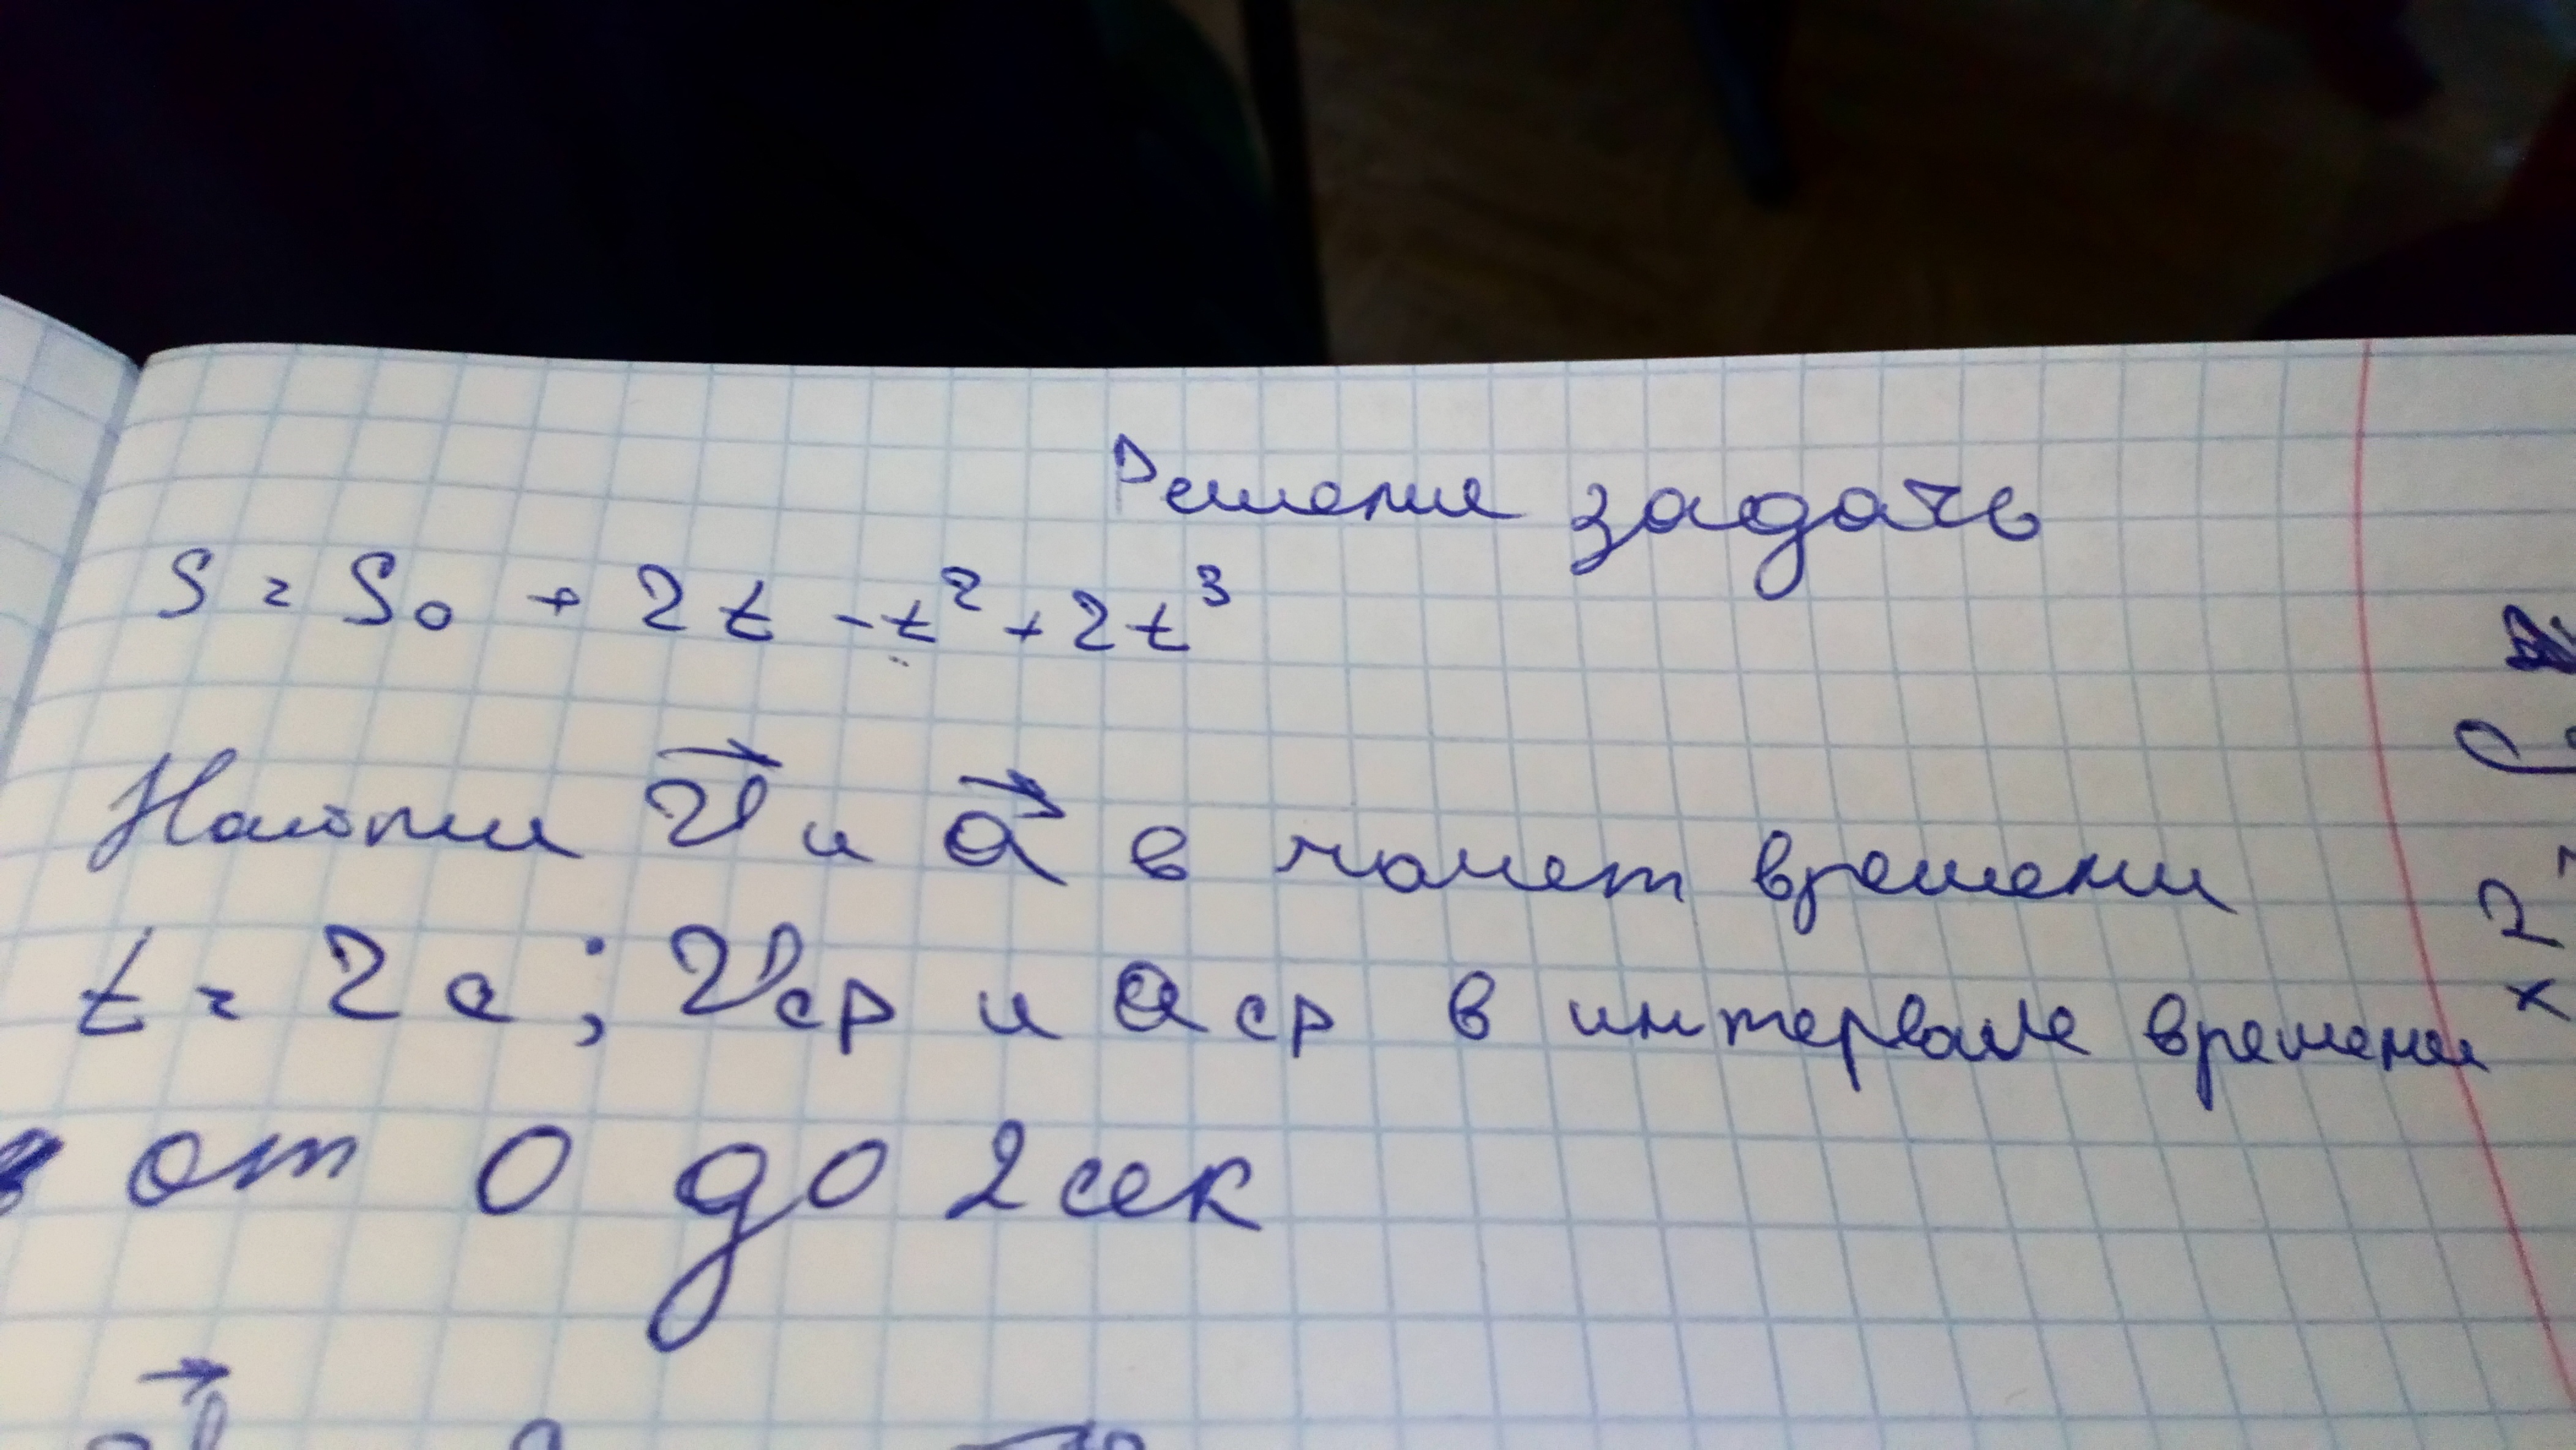 Решение задачь
S = S₀ + 2t - t² + 2t³
Найти v⃗ и a⃗ в момет времени
t = 2 с ; vср и aср в интервале времени
от 0 до 2 сек